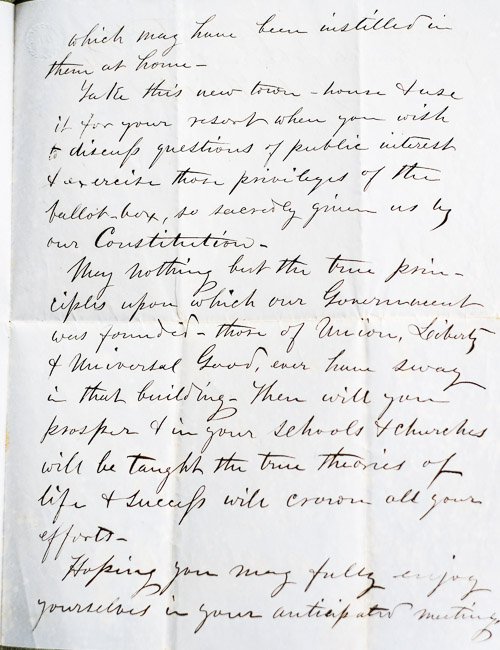 which may have been instilled in
them at home -
Take this new town-house & use
it for your resort when you wish
to discuss questions of public interest
& exercise those privileges of the
ballot-box, so sacredly given us by
our Constitution -
May nothing but the true prin-
ciples upon which our Government
was founded - those of Union, Liberty
& Universal Good, ever have sway
in that building - Then will you
prosper & in your schools & churches
will be taught the true theories of
life & success will crown all your
efforts -
Hoping you may fully enjoy
yourselves in your anticipated meeting